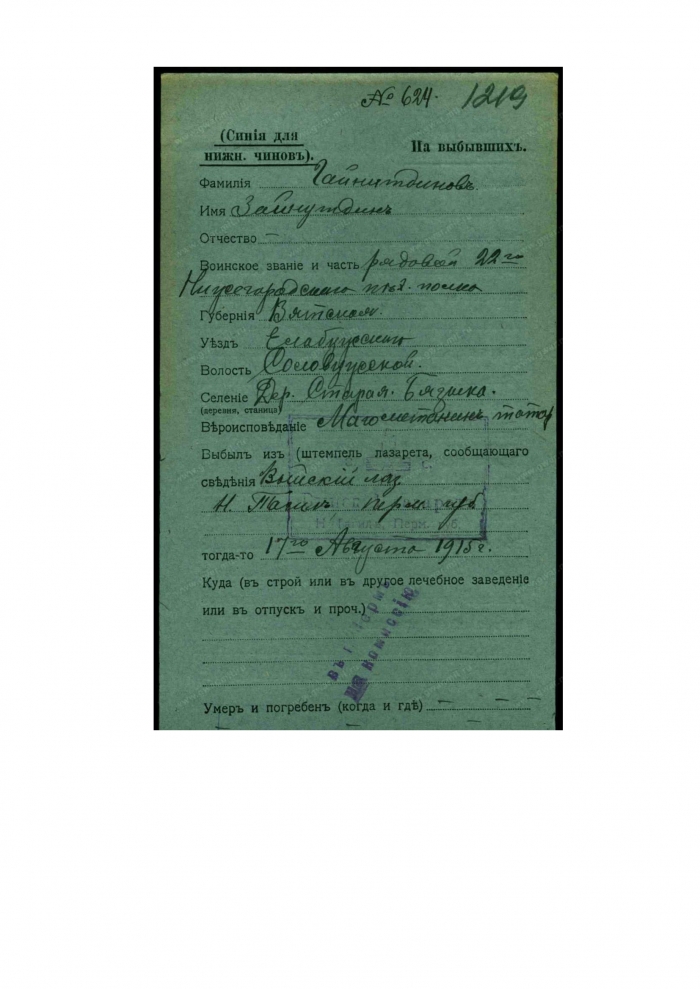 № 624. 1219
(Синія для
нижн. чиновъ).
На выбывшихъ.
Фамилія Гайнитдиновъ
Имя Зайнутдинъ
Отчество —
Воинское званіе и часть рядовой 22го
Нижегородскаго пѣх. полка
Губернія Вятская.
Уѣздъ Елабужскаго
Волость
Селеніе Дер. Старая.
(деревня, станица)
Вѣроисповѣданіе Магометанинъ татар
Выбылъ изъ (штемпель лазарета, сообщающаго
свѣдѣнія Выйскій лаз.
Н. Тагилъ Перм. губ
Н. Тагила, Перм. губ.
тогда-то 17го Августа 1915 г.
Куда (въ строй или въ другое лечебное заведеніе
или въ отпускъ и проч.)
въ г. Пермь
комиссію
Умеръ и погребенъ (когда и гдѣ) — — —